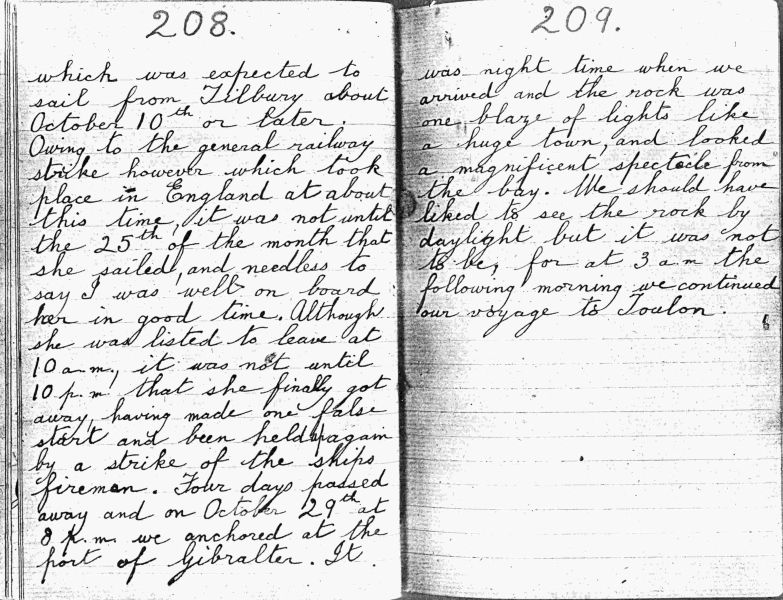 208.
which was expected to
sail from Tilbury about
October 10th or later.
Owing to the general railway
strike however which took
place in England at about
this time, it was not until
the 25th of the month that
she sailed, and needless to
say I was well on board
her in good time. Although
she was listed to leave at
10 a.m, it was not until
10 p.m that she finally got
away, having made one false
start and been held up again
by a strike of the ships
firemen. Four days passed
away and on October 29th at
8 p.m. we anchored at the
port of Gibralter. It
209.
was night time when we
arrived and the rock was
one blaze of lights like
a huge town, and looked
a magnificent spectacle from
the bay. We should have
liked to see the rock by
daylight but it was not
to be, for at 3 a m the
following morning we continued
our voyage to Toulon.